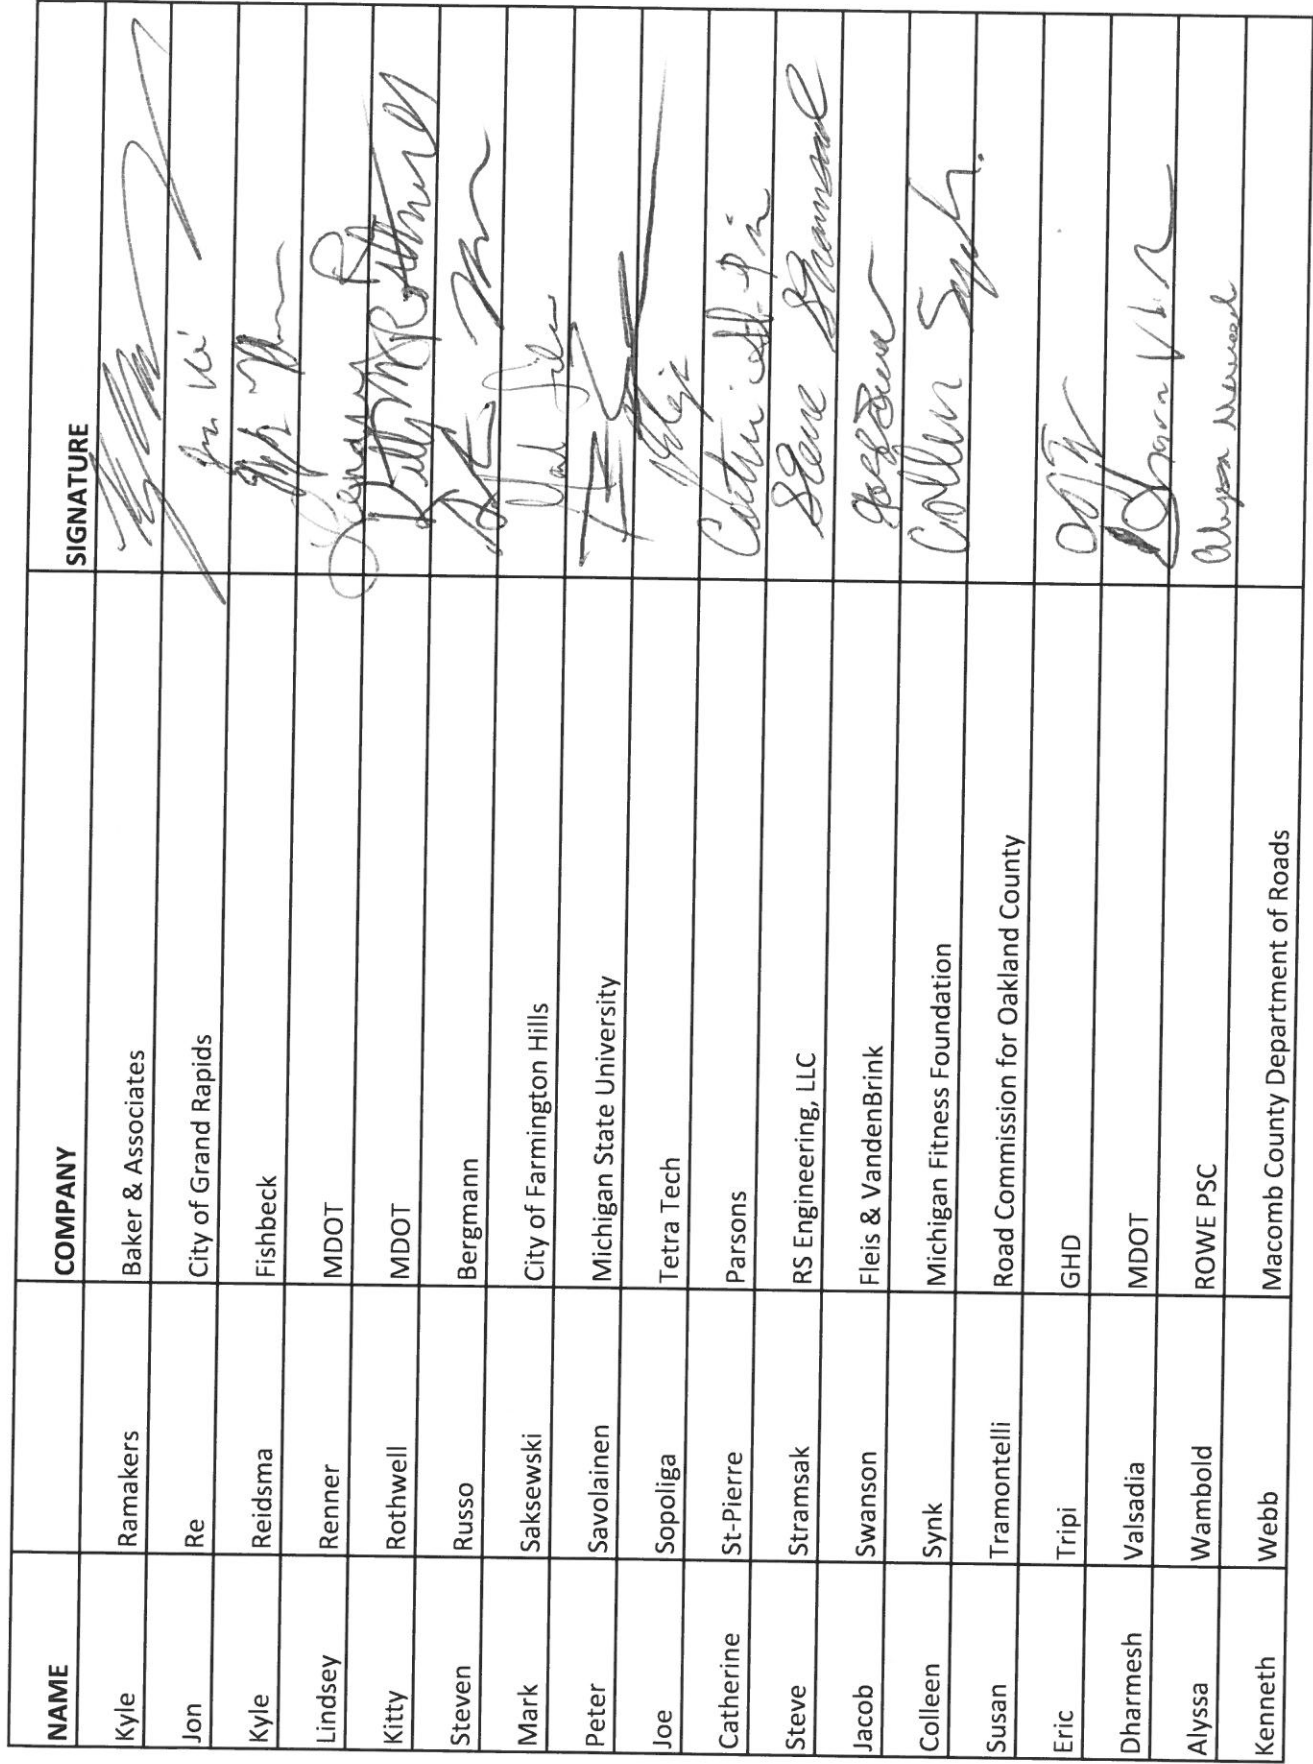 NAME COMPANY SIGNATURE
Kyle Ramakers Baker & Associates
Jon Re City of Grand Rapids
Kyle Reidsma Fishbeck
Lindsey Renner MDOT
Kitty Rothwell MDOT
Steven Russo Bergmann
Mark Saksewski City of Farmington Hills
Peter Savolainen Michigan State University
Joe Sopoliga Tetra Tech
Catherine St-Pierre Parsons
Steve Stramsak RS Engineering, LLC Steve Stramsak
Jacob Swanson Fleis & VandenBrink
Colleen Synk Michigan Fitness Foundation Colleen Synk
Susan Tramontelli Road Commission for Oakland County
Eric Tripi GHD
Dharmesh Valsadia MDOT
Alyssa Wambold ROWE PSC Alyssa
Kenneth Webb Macomb County Department of Roads